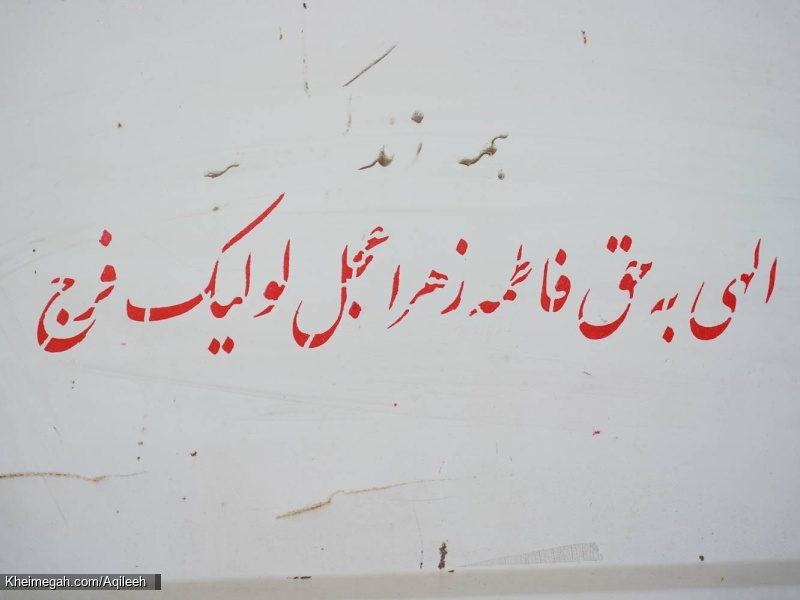 الهی به حق فاطمه زهرا عجل لولیک فرج
Kheimegah.com/Aqileeh